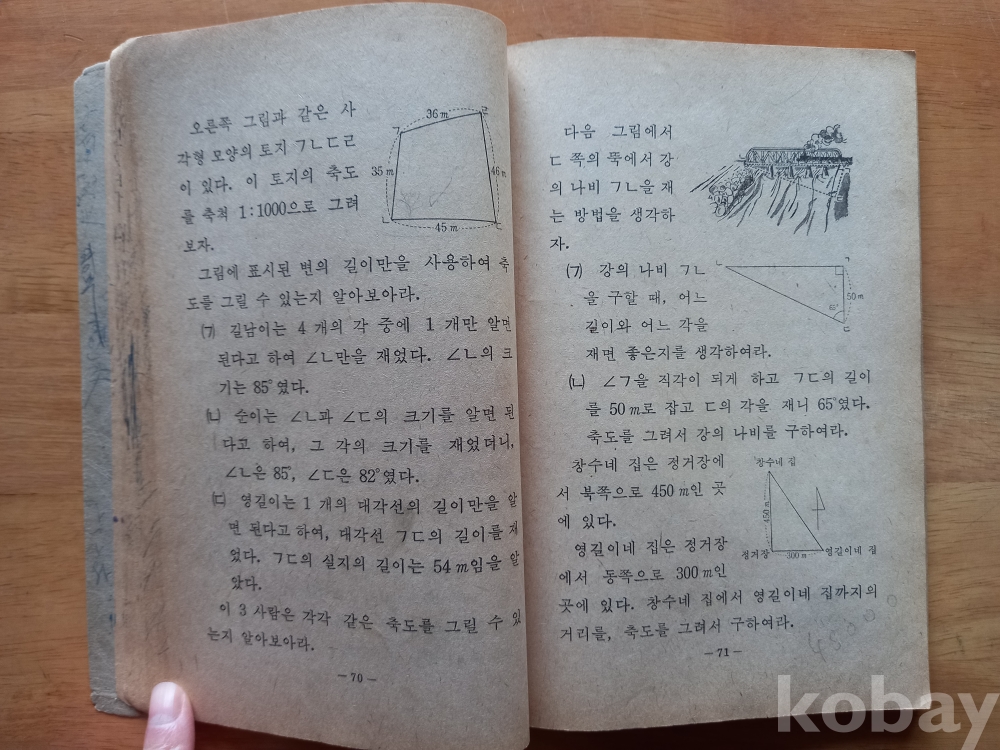 오른쪽 그림과 같은 사
각형 모양의 토지 ㄱㄴㄷㄹ
이 있다. 이 토지의 축도
를 축척 1:1000으로 그려
보자.
36 m
ㄱ
ㄹ
35 m
46 m
ㄴ
45 m
ㄷ
그림에 표시된 변의 길이만을 사용하여 축
도를 그릴 수 있는지 알아보아라.
(ㄱ) 길남이는 4 개의 각 중에 1 개만 알면
된다고 하여 ∠ㄴ만을 재었다. ∠ㄴ의 크
기는 85°였다.
(ㄴ) 순이는 ∠ㄴ과 ∠ㄷ의 크기를 알면 된
다고 하여, 그 각의 크기를 재었더니,
∠ㄴ은 85°, ∠ㄷ은 82°였다.
(ㄷ) 영길이는 1 개의 대각선의 길이만을 알
면 된다고 하여, 대각선 ㄱㄷ의 길이를 재
었다. ㄱㄷ의 실지의 길이는 54 m임을 알
았다.
이 3 사람은 각각 같은 축도를 그릴 수 있
는지 알아보아라.
— 70 —
다음 그림에서
ㄷ 쪽의 뚝에서 강
의 나비 ㄱㄴ을 재
는 방법을 생각하
자.
(ㄱ) 강의 나비 ㄱㄴ
을 구할 때, 어느
길이와 어느 각을
재면 좋은지를 생각하여라.
ㄴ
ㄱ
50 m
65°
ㄷ
(ㄴ) ∠ㄱ을 직각이 되게 하고 ㄱㄷ의 길이
를 50 m로 잡고 ㄷ의 각을 재니 65°였다.
축도를 그려서 강의 나비를 구하여라.
창수네 집은 정거장에
서 북쪽으로 450 m인 곳
에 있다.
영길이네 집은 정거장
에서 동쪽으로 300 m인
곳에 있다. 창수네 집에서 영길이네 집까지의
거리를, 축도를 그려서 구하여라.
창수네 집
450 m
정거장
300 m
영길이네 집
— 71 —
kobay